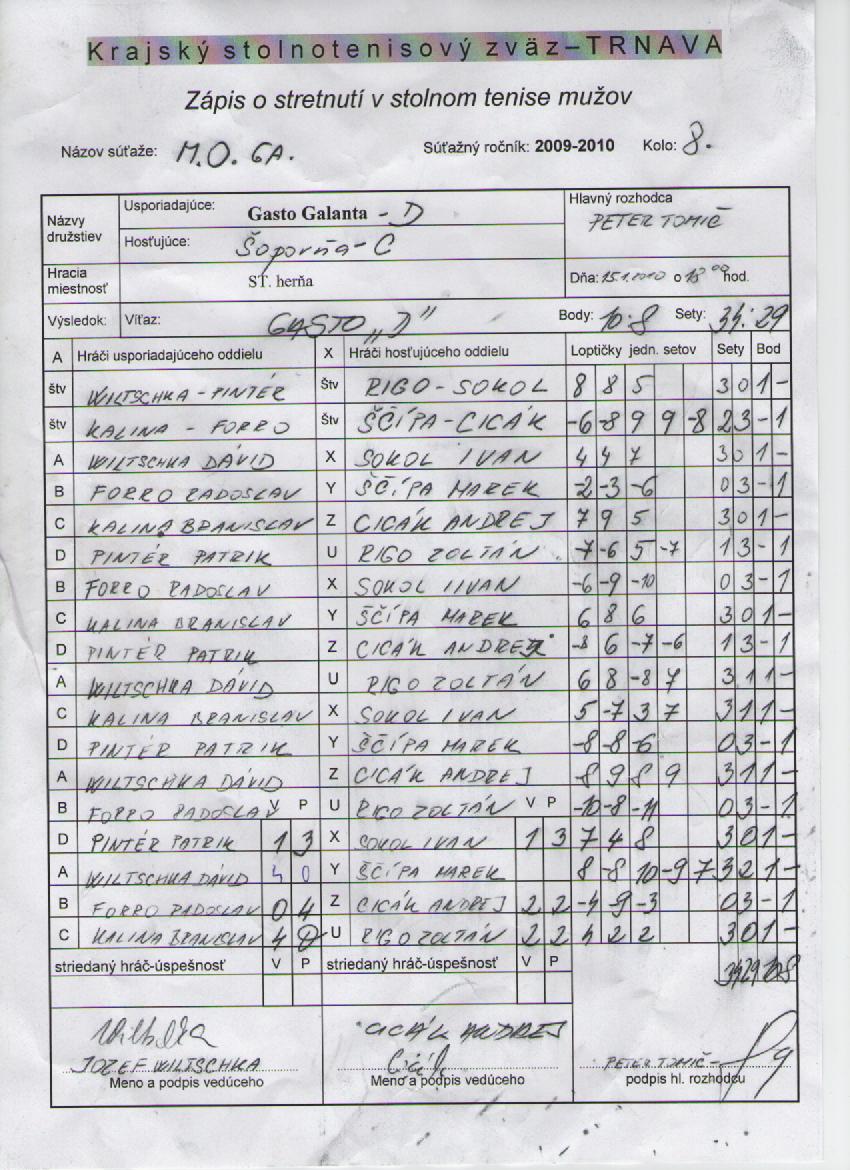 Krajský stolnotenisový zväz–TRNAVA
Zápis o stretnutí v stolnom tenise mužov
Názov súťaže: M.O. GA. Súťažný ročník: 2009-2010 Kolo: 8.
Názvy družstiev Usporiadajúce: Gasto Galanta - D Hlavný rozhodca PETER TOMIČ
Hosťujúce: Šoporňa - C
Hracia miestnosť ST. herňa Dňa: 15.1.2010 o 18 00 hod.
Výsledok: Víťaz: GASTO „D" Body: 10:8 Sety: 34:29
A Hráči usporiadajúceho oddielu X Hráči hosťujúceho oddielu Loptičky jedn. setov Sety Bod
štv WILTSCHKA - PINTÉR Štv RIGO - SOKOL 8 8 5 3 0 1 -
štv KALINA - FORRO Štv ŠČÍPA - CICÁK -6 -8 9 9 -8 2 3 - 1
A WILTSCHKA DÁVID X SOKOL IVAN 4 4 7 3 0 1 -
B FORRO RADOSLAV Y ŠČÍPA MAREK -2 -3 -6 0 3 - 1
C KALINA BRANISLAV Z CICÁK ANDREJ 7 9 5 3 0 1 -
D PINTÉR PATRIK U RIGO ZOLTÁN -7 -6 5 -7 1 3 - 1
B FORRO RADOSLAV X SOKOL IIVAN -6 -9 -10 0 3 - 1
C KALINA BRANISLAV Y ŠČÍPA MAREK 6 8 6 3 0 1 -
D PINTÉR PATRIK Z CICÁK ANDREJ -8 6 -7 -6 1 3 - 1
A WILTSCHKA DÁVID U RIGO ZOLTÁN 6 8 -8 7 3 1 1 -
C KALINA BRANISLAV X SOKOL IVAN 5 -7 3 7 3 1 1 -
D PINTÉR PATRIK Y ŠČÍPA MAREK -8 -8 -6 0 3 - 1
A WILTSCHKA DÁVID Z CICÁK ANDREJ -8 9 8 9 3 1 1 -
B FORRO RADOSLAV V P U RIGO ZOLTÁN V P -10 -8 -11 0 3 - 1
D PINTÉR PATRIK 1 3 X SOKOL IVAN 1 3 7 4 8 3 0 1 -
A WILTSCHKA DÁVID 4 0 Y ŠČÍPA MAREK 8 -8 10 -9 7 3 2 1 -
B FORRO RADOSLAV 0 4 Z CICÁK ANDREJ 2 2 -4 -9 -3 0 3 - 1
C KALINA BRANISLAV 4 0 U RIGO ZOLTÁN 2 2 4 2 2 3 0 1 -
striedaný hráč-úspešnosť V P striedaný hráč-úspešnosť V P 34 29 10 8
CICÁK ANDREJ
JOZEF WILTSCHKA PETER TOMIČ
Meno a podpis vedúceho Meno a podpis vedúceho podpis hl. rozhodcu